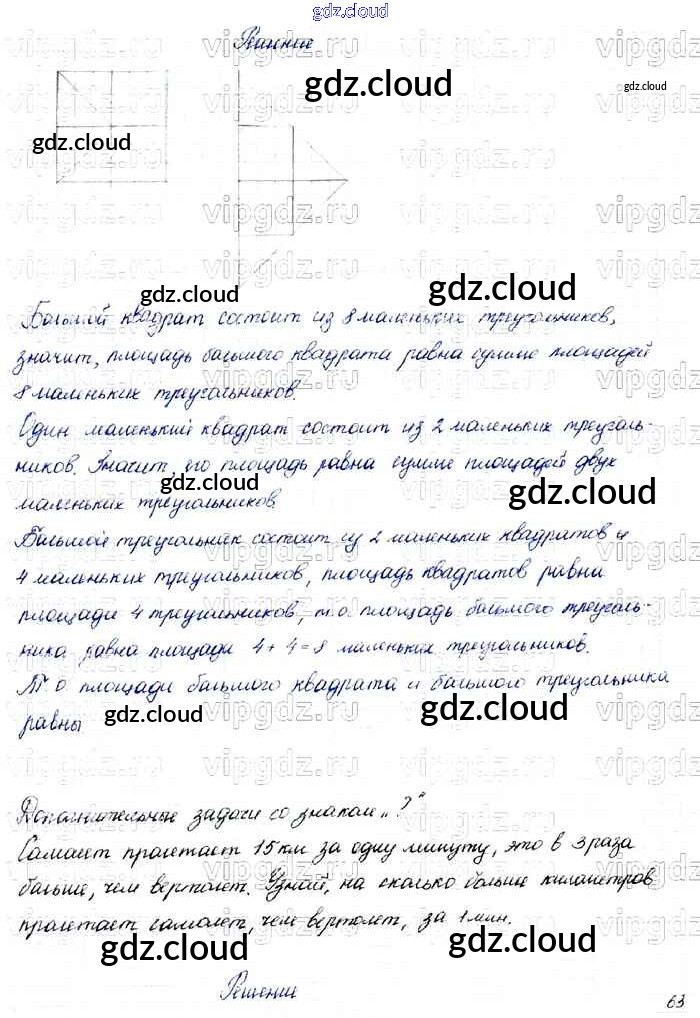 gdz.cloud
Решение
gdz.cloud
gdz.cloud
gdz.cloud
gdz.cloud
gdz.cloud
Большой квадрат состоит из 8 маленьких треугольников,
значит, площадь большого квадрата равна сумме площадей
8 маленьких треугольников.
Один маленький квадрат состоит из 2 маленьких треуголь-
ников. Значит, его площадь равна сумме площадей двух
маленьких треугольников.
gdz.cloud
gdz.cloud
Большой треугольник состоит из 2 маленьких квадратов и
4 маленьких треугольников, площадь квадратов равна
площади 4 треугольников, т.о. площадь большого треуголь-
ника равна площади 4+4=8 маленьких треугольников.
Т.о. площади большого квадрата и большого треугольника
равны
gdz.cloud
gdz.cloud
Дополнительные задачи со знаком „?“
Самолет пролетает 15 км за одну минуту, это в 3 раза
больше, чем вертолет. Узнай, на сколько больше километров
пролетает самолет, чем вертолет, за 1 мин.
gdz.cloud
gdz.cloud
Решение
63
vipgdz.ru